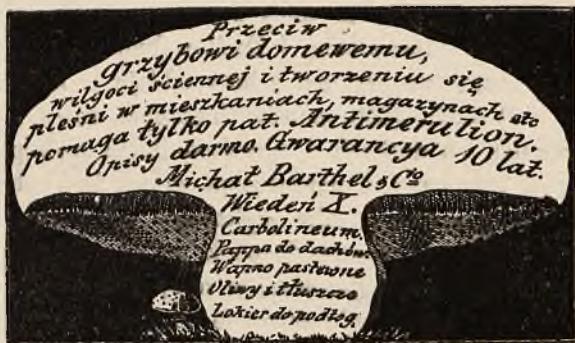 Przeciw
grzybowi domewemu,
wilgoci ściennej i tworzeniu się
pleśni w mieszkaniach, magazynach etc
pomaga tylko pat. Antimerulion.
Opisy darmo. Gwarancya 10 lat.
Michał Barthel & Cio
Wiedeń X.
Carbolineum.
Pappa do dachów.
Wapno pastewne
Oliwy i tłuszcze
Lakier do podłog